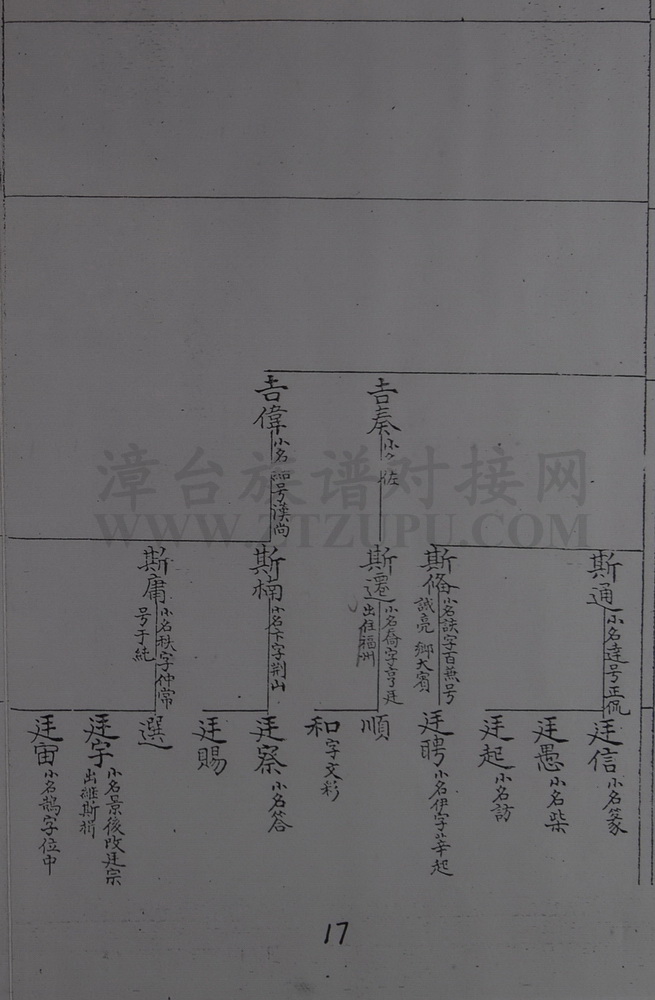 吉奏
小名
吉偉
小名 号漢尚
斯通
小名達号正侃
斯脩
誠亮 鄉大賓
斯遷
小名喬字亨廷
出住福州
斯楠
小名卞字荆山
斯庸
小名秩字仲常
号于純
廷信
小名篆
廷愚
小名柴
廷起
小名訪
廷聘
小名伊字莘起
順
和
字文彩
廷察
小名答
廷賜
選
廷字
小名景後改廷宗
廷宙
小名鵲字位中
17
漳台族谱对接网
WWW.ZTZUPU.COM